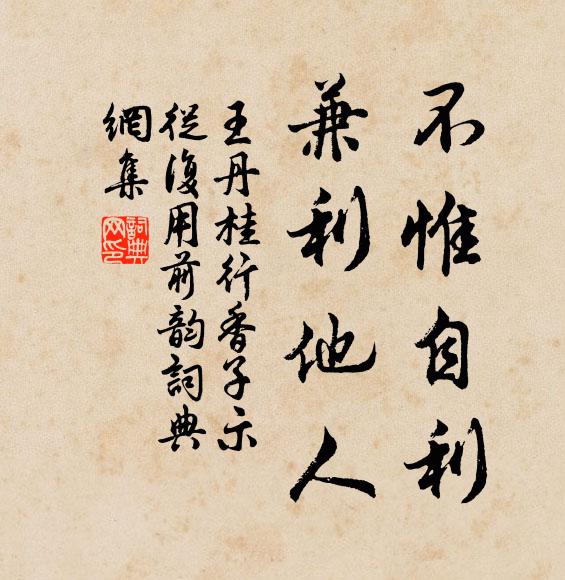 不惟自利
兼利他人
王丹桂行香子示
從復用前韵詞典
網集
詞典
网印